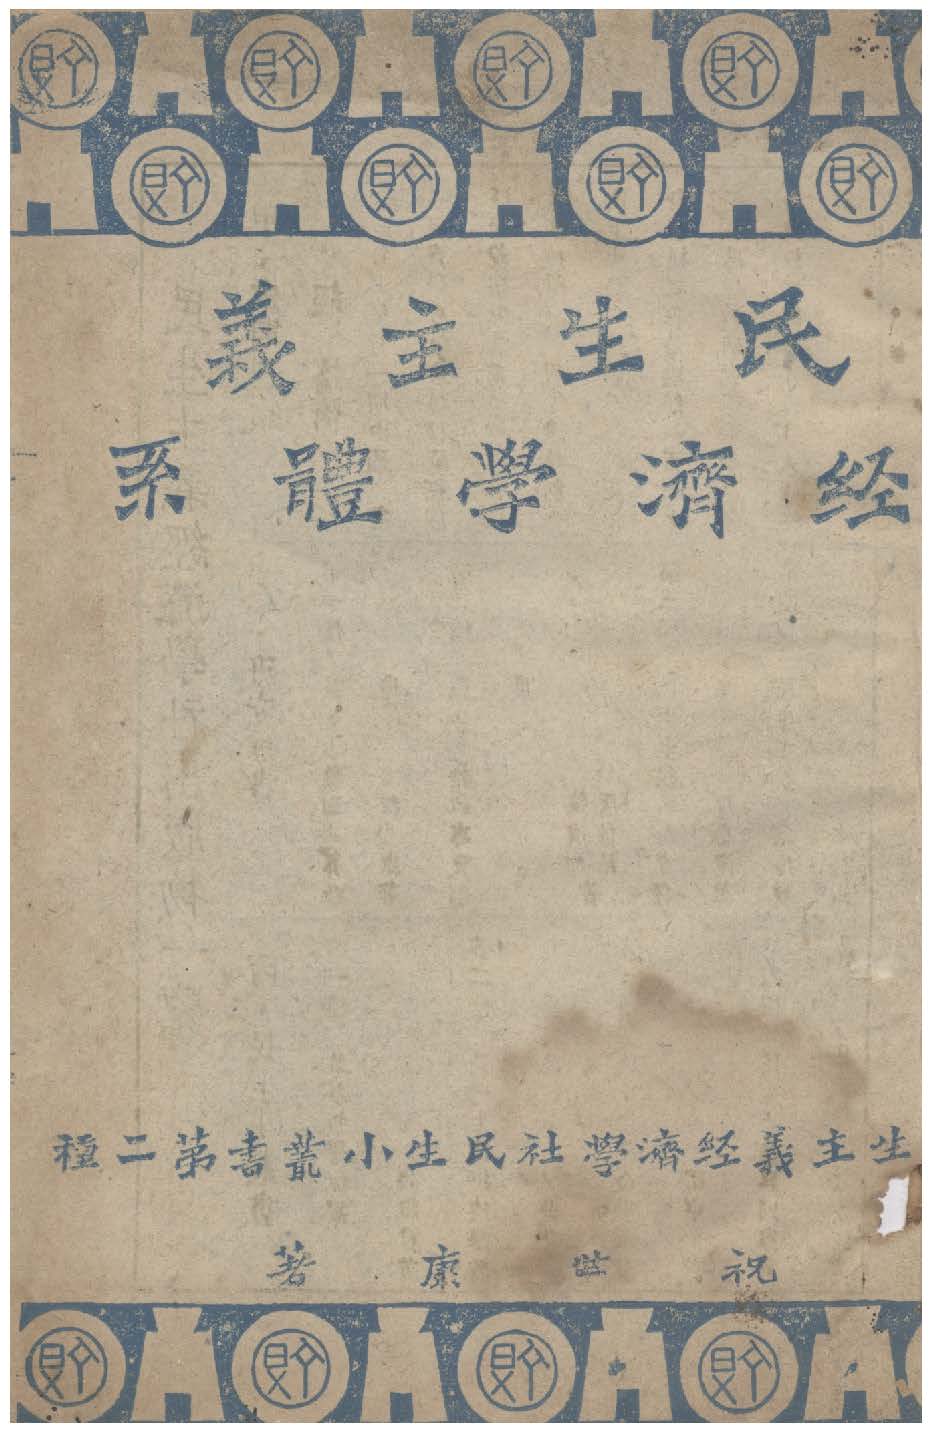 民生主義
经濟學體系
生主義经濟學社民生小叢書第二種
祝世康著